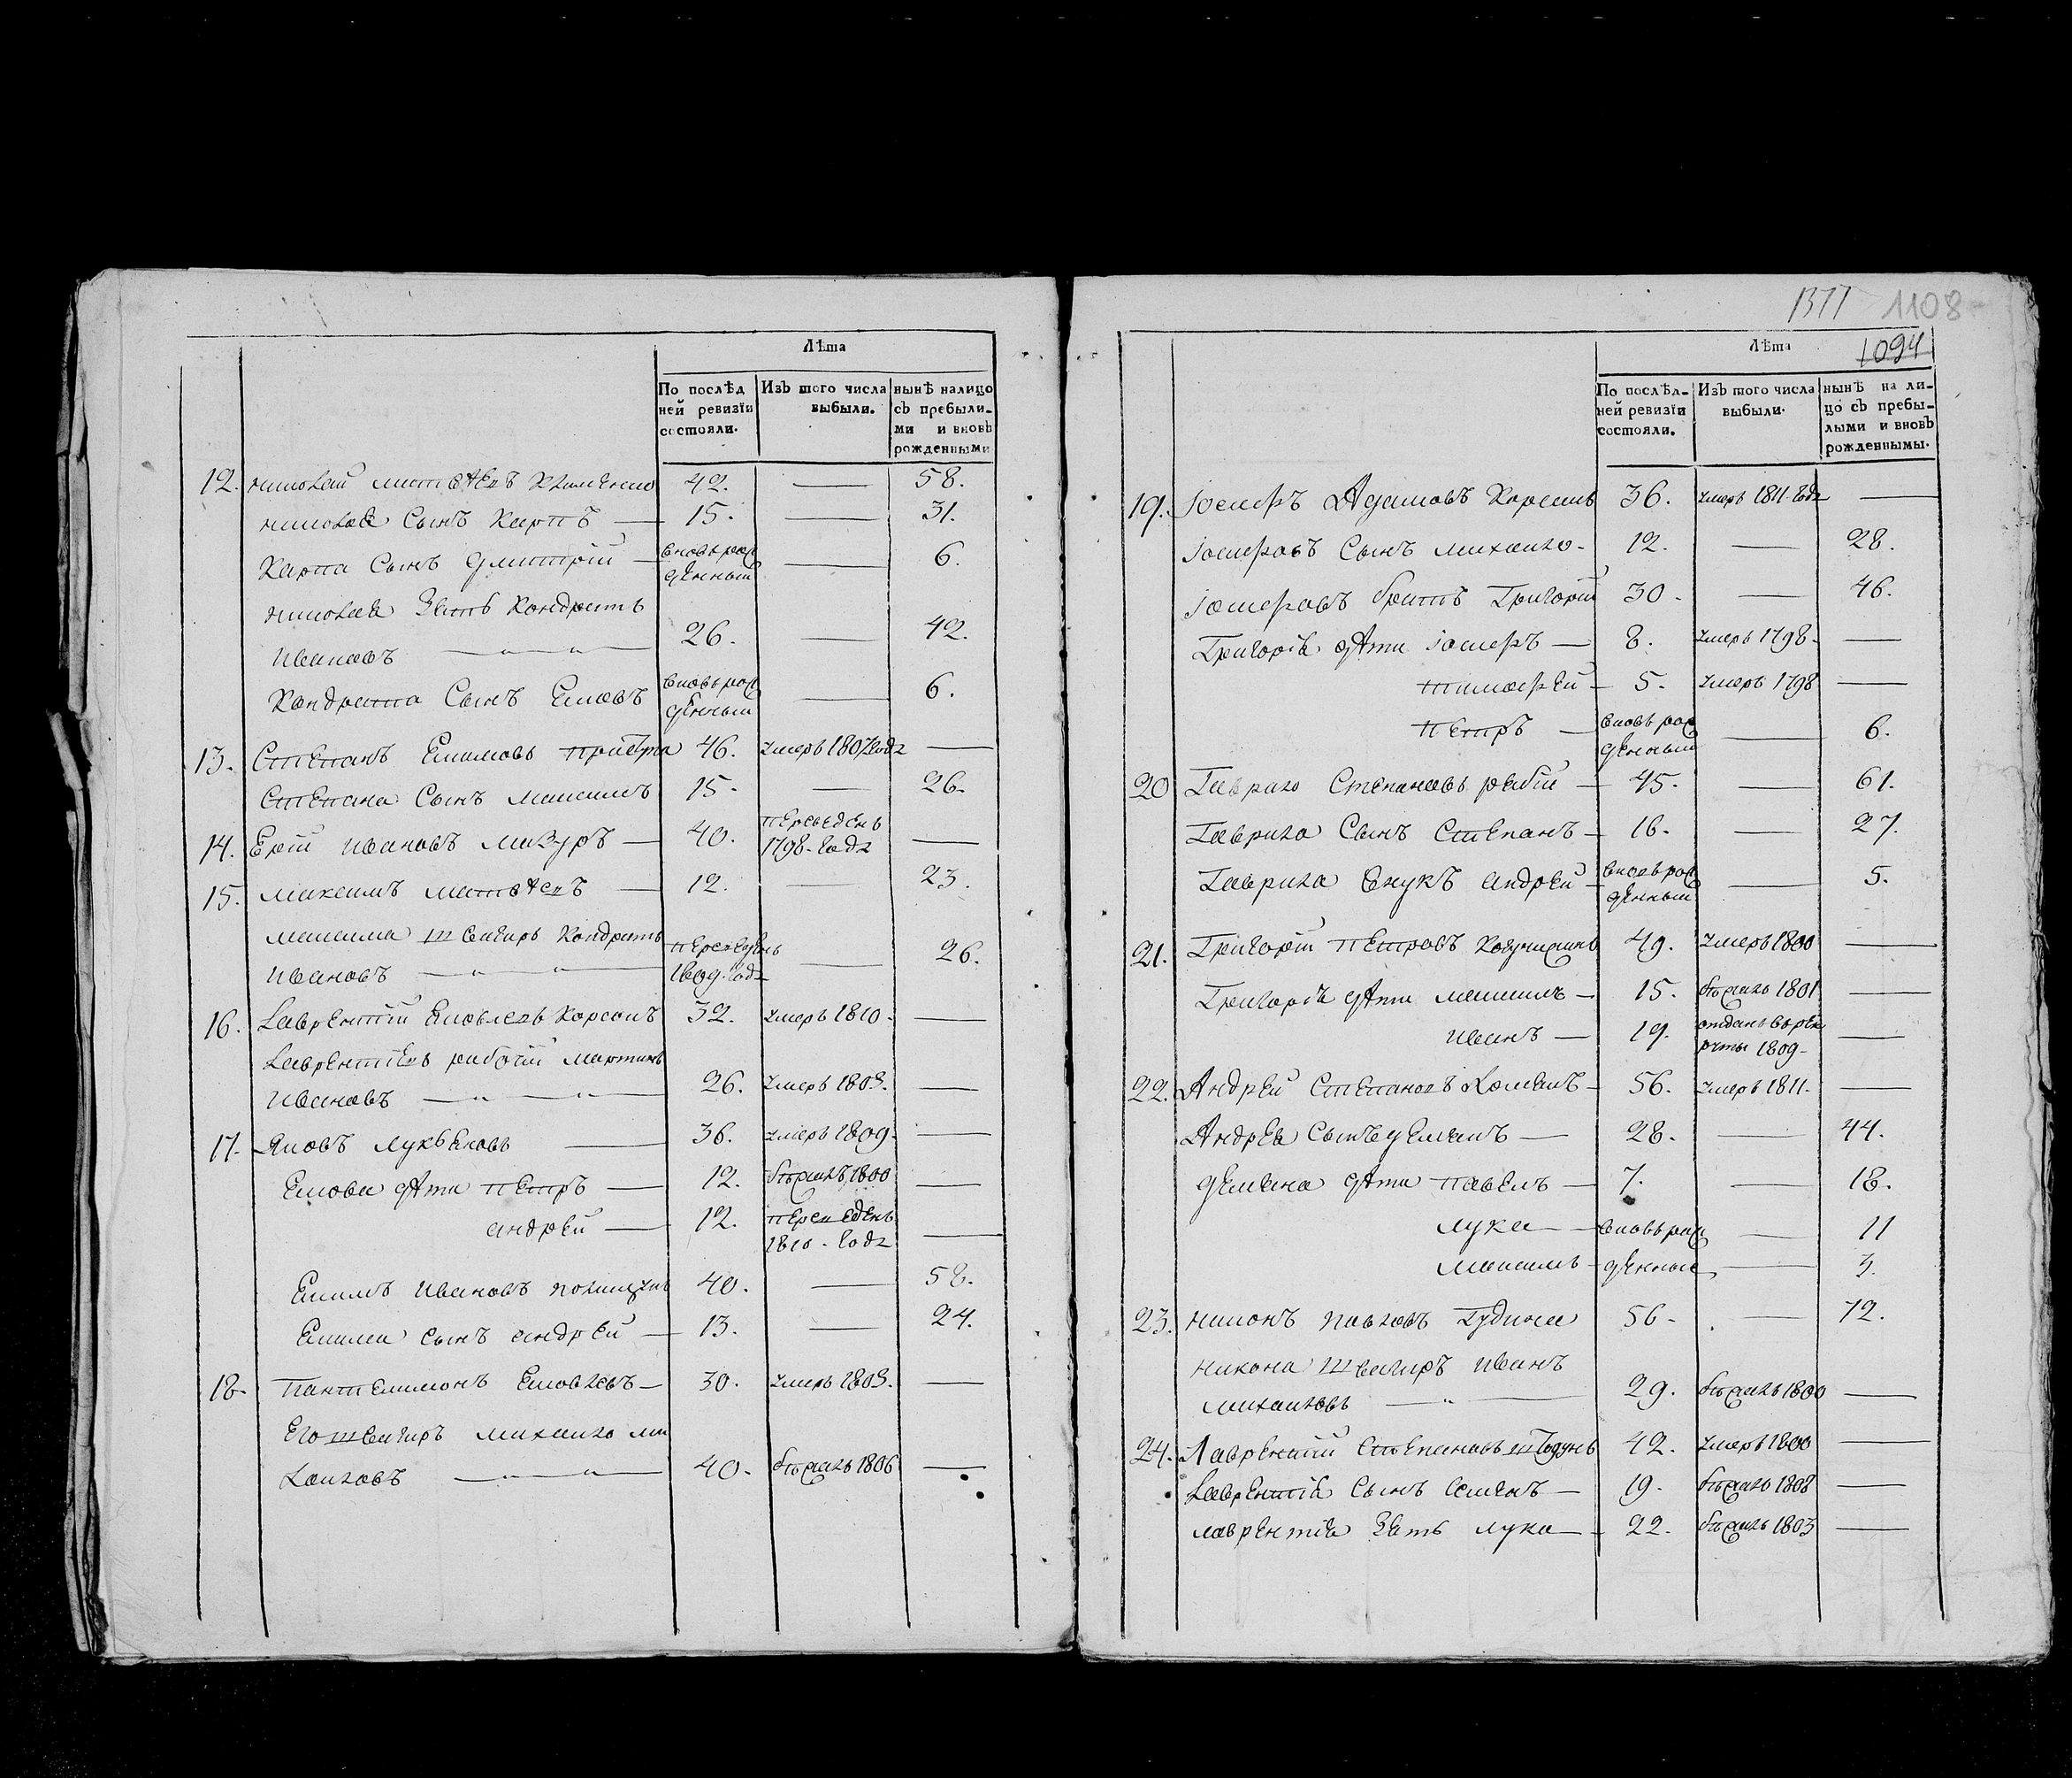 Лѣта
По послѣд
ней ревизїи
состояли.
Изъ того числа
выбыли.
нынѣ налицо
съ пребыли-
ми и вновь
рожденными
12. николай матвѣевъ 42. — 58.
николая Сынъ Карпъ — 15. — 31.
Карпа Сынъ дмитрій — вновь рож
денный — 6.
николая Зять Кондратъ
Ивановъ — 26. — 42.
Кондрата Сынъ Яковъ вновь рож
денный — 6.
13. Степанъ Якимовъ 46. умеръ 1807 года —
Степана Сынъ Максимъ 15. — 26.
14. Ерій Ивановъ Мазуръ — 40. переведенъ
1798. года —
15. максимъ матвѣевъ — 12. — 23.
максима швагиръ Кондратъ переведенъ
Ивановъ — 1809. года — 26.
16. Лаврентій Яковлевъ Корсакъ 32. умеръ 1810. —
Лаврентіевъ рабочій мартинъ
Ивановъ — 26. умеръ 1803. —
17. Яковъ Лукьяновъ — 36. умеръ 1809. —
Якова дѣти петръ — 12. бѣжалъ 1800 —
андрей — 12. переведенъ
1810. года —
Якимъ Ивановъ 40. — 58.
Якима сынъ андрей — 13. — 24.
18. пантелимонъ Яковлевъ — 30. умеръ 1803. —
Его швагиръ михайло ми
хайловъ — 40. бѣжалъ 1806 —
1377 1108
1094
Лѣта
По послѣд-
ней ревизїи
состояли.
Изъ того числа
выбыли.
нынѣ на ли-
цо съ пребы-
лыми и вновь
рожденнымы.
19. Іосифъ Адамовъ 36. умеръ 1811. года —
Іосифовъ Сынъ михайло — 12. — 28.
Іосифовъ братъ Григорій 30. — 46.
Григорія дѣти Іосифъ — 8. умеръ 1798. —
тимофей — 5. умеръ 1798 —
петръ — вновь рож
денный — 6.
20 Гаврило Степановъ рабій — 45. — 61.
Гаврила Сынъ Степанъ — 16. — 27.
Гаврила внукъ андрей — вновь рож
денный — 5.
21. Григорій петровъ 49. умеръ 1800 —
Григорія дѣти максимъ — 15. бѣжалъ 1801 —
иванъ — 19. отданъ въ рек
руты 1809 — —
22. Андрей Степановъ — 56. умеръ 1811. —
Андрея Сынъ демянъ — 28. — 44.
демяна дѣти павелъ — 7. — 18.
лука — вновь рож — 11
максимъ — денные — 3.
23. никонъ павловъ Гудима 56 — . — 72.
никона швагиръ иванъ
михайловъ — 29. бѣжалъ 1800 —
24. Лаврентій Степановъ 42. умеръ 1800 —
Лаврентія Сынъ Семенъ — 19. бѣжалъ 1808 —
лаврентія Зять лука — 22. бѣжалъ 1803 —